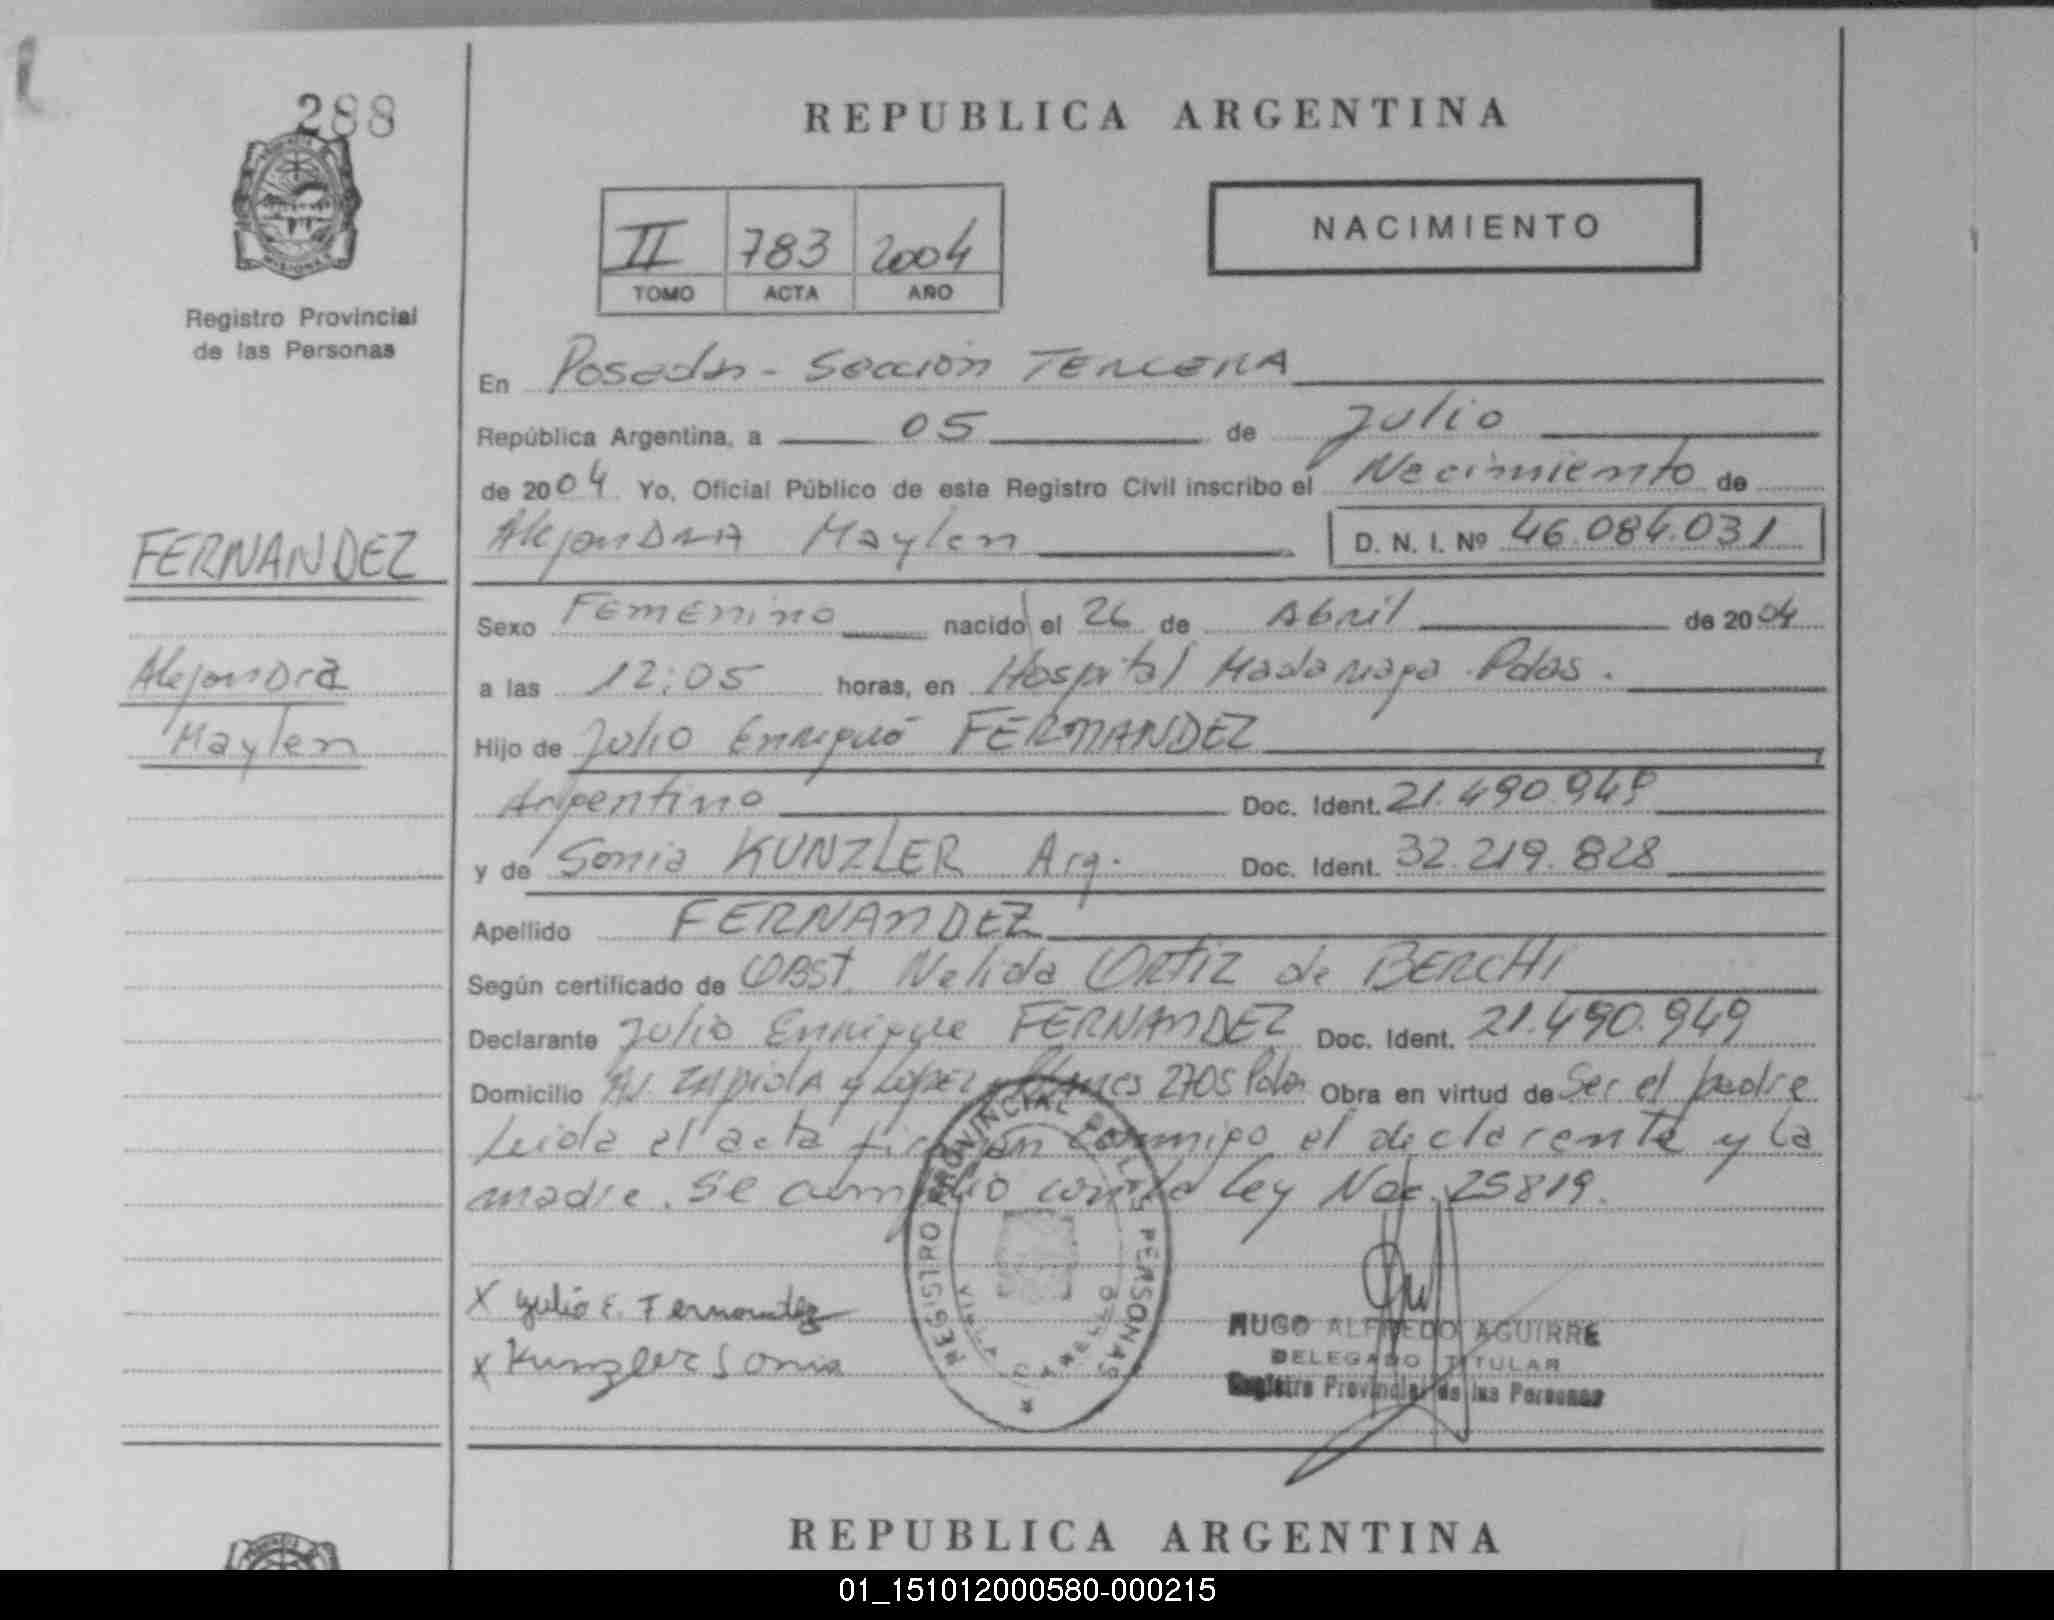 288
REPUBLICA ARGENTINA
II 783 2004
TOMO ACTA AÑO
NACIMIENTO
MISIONES
Registro Provincial
de las Personas
En Posadas - Sección TERCERA
República Argentina, a 05 de Julio
de 2004 Yo, Oficial Público de este Registro Civil inscribo el Nacimiento de
Alejandra Maylen D. N. I. Nº 46.084.031
FERNANDEZ
Alejandra
Maylen
Sexo Femenino nacido el 26 de Abril de 2004
a las 12:05 horas, en Hospital Madariaga Pdas.
Hijo de Julio Enrique FERNANDEZ
Argentino Doc. Ident. 21.490.949
y de Sonia KUNZLER Arg. Doc. Ident. 32.219.828
Apellido FERNANDEZ
Según certificado de OBST. Nelida ORTIZ de BERCHI
Declarante Julio Enrique FERNANDEZ Doc. Ident. 21.490.949
Domicilio Av. ZAPIOLA y LOPEZ y Planes 2705 Pdas Obra en virtud de Ser el padre
Leida el acta firman conmigo el declarante y la
madre. Se cumplio con la Ley Nac. 25819.
X Julio E. Fernandez
X Kunzler Sonia
REGISTRO PROVINCIAL DE LAS PERSONAS
VILLA CABELLO
HUGO ALFREDO AGUIRRE
DELEGADO TITULAR
Registro Provincial de las Personas
REPUBLICA ARGENTINA
01_151012000580-000215